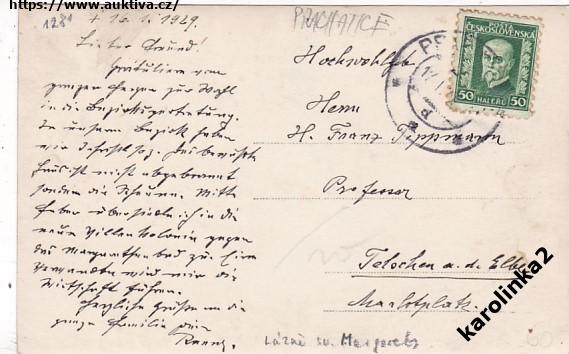 https://www.auktiva.cz/
1281
+ 16. 1. 1929.
PRACHATICE
Lieber Freund!
Gratuliere vom
ganzen Herzen zur Wahl
in die Bezirksvertretung.
In unserem Bezirk haben
wir
Haus ist nicht abgebrannt
sondern die Scheuer. Mitte
Feber übersiedle ich in die
neue Villenkolonie gegen
das Margarethenbad zu. Eine
Verwandte wird mir die
Wirtschaft führen.
Herzliche Grüße an die
ganze Familie Dein
Hochwohlgb.
Herrn
H. Franz Tippmann
Professor
Tetschen a. d. Elbe
Marktplatz.
POSTA
ČESKOSLOVENSKÁ
50 HALÉŘŮ 50
Lázně sv. Markéty
60
karolinka2